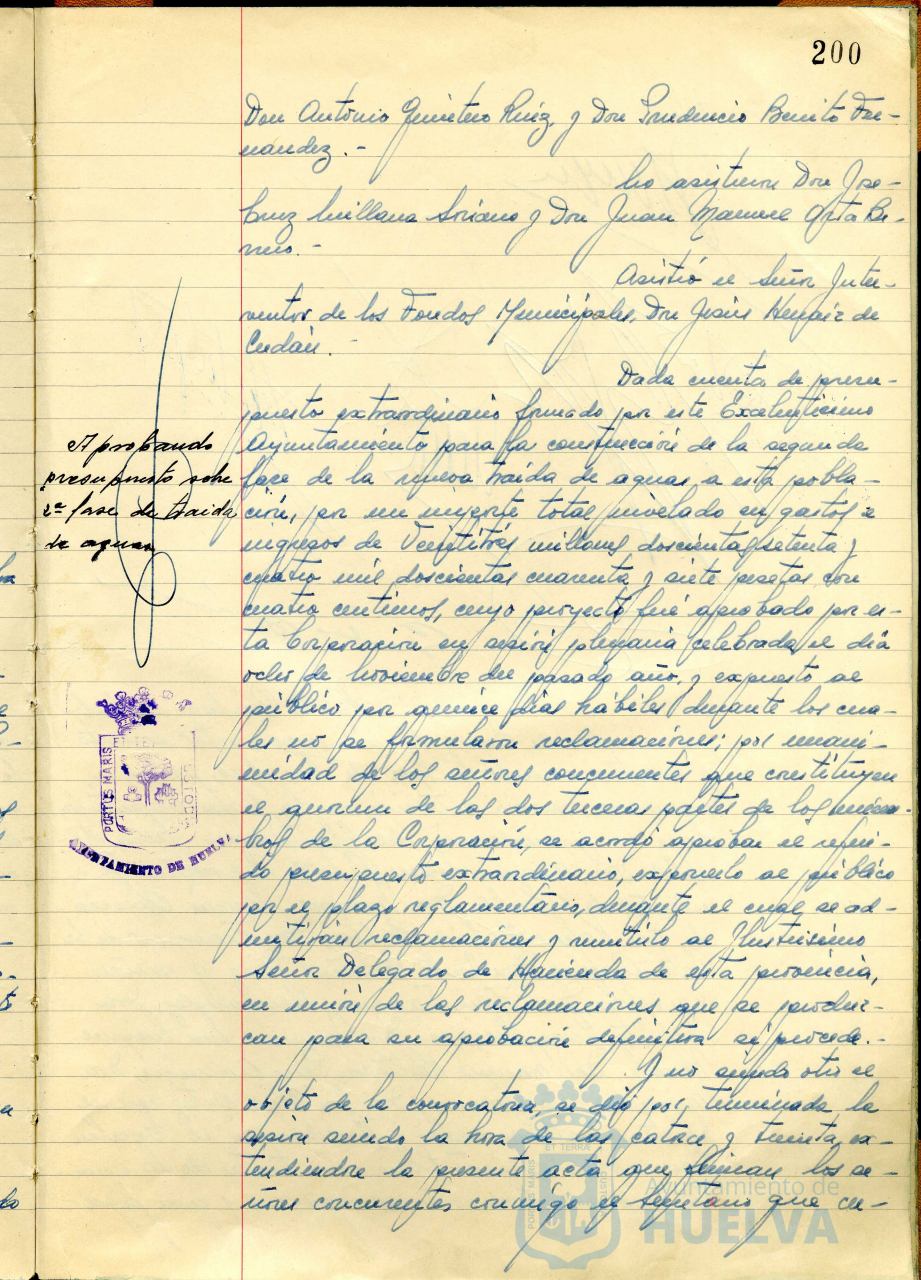 200
Don Antonio Quintero Ruiz y Don Prudencio Benito Fer-
nandez.-
No asistieron Don Jose
Cruz Millana Soriano y Don Juan Manuel Orta Be-
Asistió el Señor Inter-
ventor de los Fondos Municipales, Don Jesús
Dada cuenta de presu-
puesto extraordinario formado por este Excelentísimo
Ayuntamiento para la construcción de la segunda
fase de la nueva traida de aguas a esta pobla-
ción, por un importe total nivelado en gastos e
ingresos de Veintitrés millones, doscientas setenta y
cuatro mil doscientas cuarenta y siete pesetas con
cuatro centimos, cuyo proyecto fué aprobado por es-
ta Corporación en sesión plenaria celebrada el dia
ocho de Noviembre del pasado año, y expuesto al
público por quince dias hábiles durante los cua-
les no se formularon reclamaciones; por unani-
midad de los señores concurrentes que constituyen
el quorum de las dos terceras partes de los miem-
bros de la Corporación, se acordó aprobar el referi-
do presupuesto extraordinario, exponerlo al público
por el plazo reglamentario, durante el cual se ad-
mitirán reclamaciones y remitirlo al Ilustrísimo
Señor Delegado de Hacienda de esta provincia,
en unión de las reclamaciones que se produz-
can para su aprobación definitiva si procede.-
Y no siendo otro el
objeto de la convocatoria, se dió por terminada la
sesion siendo la hora de las catorce y treinta, ex-
tendiendose la presente acta que firman los se-
ñores concurrentes conmigo el Secretario que cer-
Aprobando
presupuesto sobre
2ª fase de traida
de aguas
PORTUS MARIS
AYUNTAMIENTO DE HUELVA
Ayuntamiento de
HUELVA